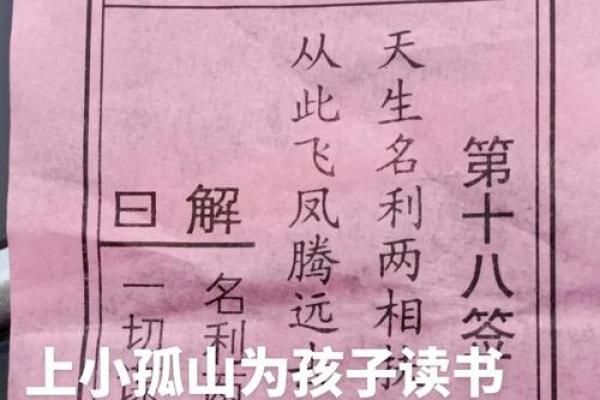 第十八签
天生名利两相扶
从此飞凤腾远
解曰
名利
一切
上小孤山为孩子读书